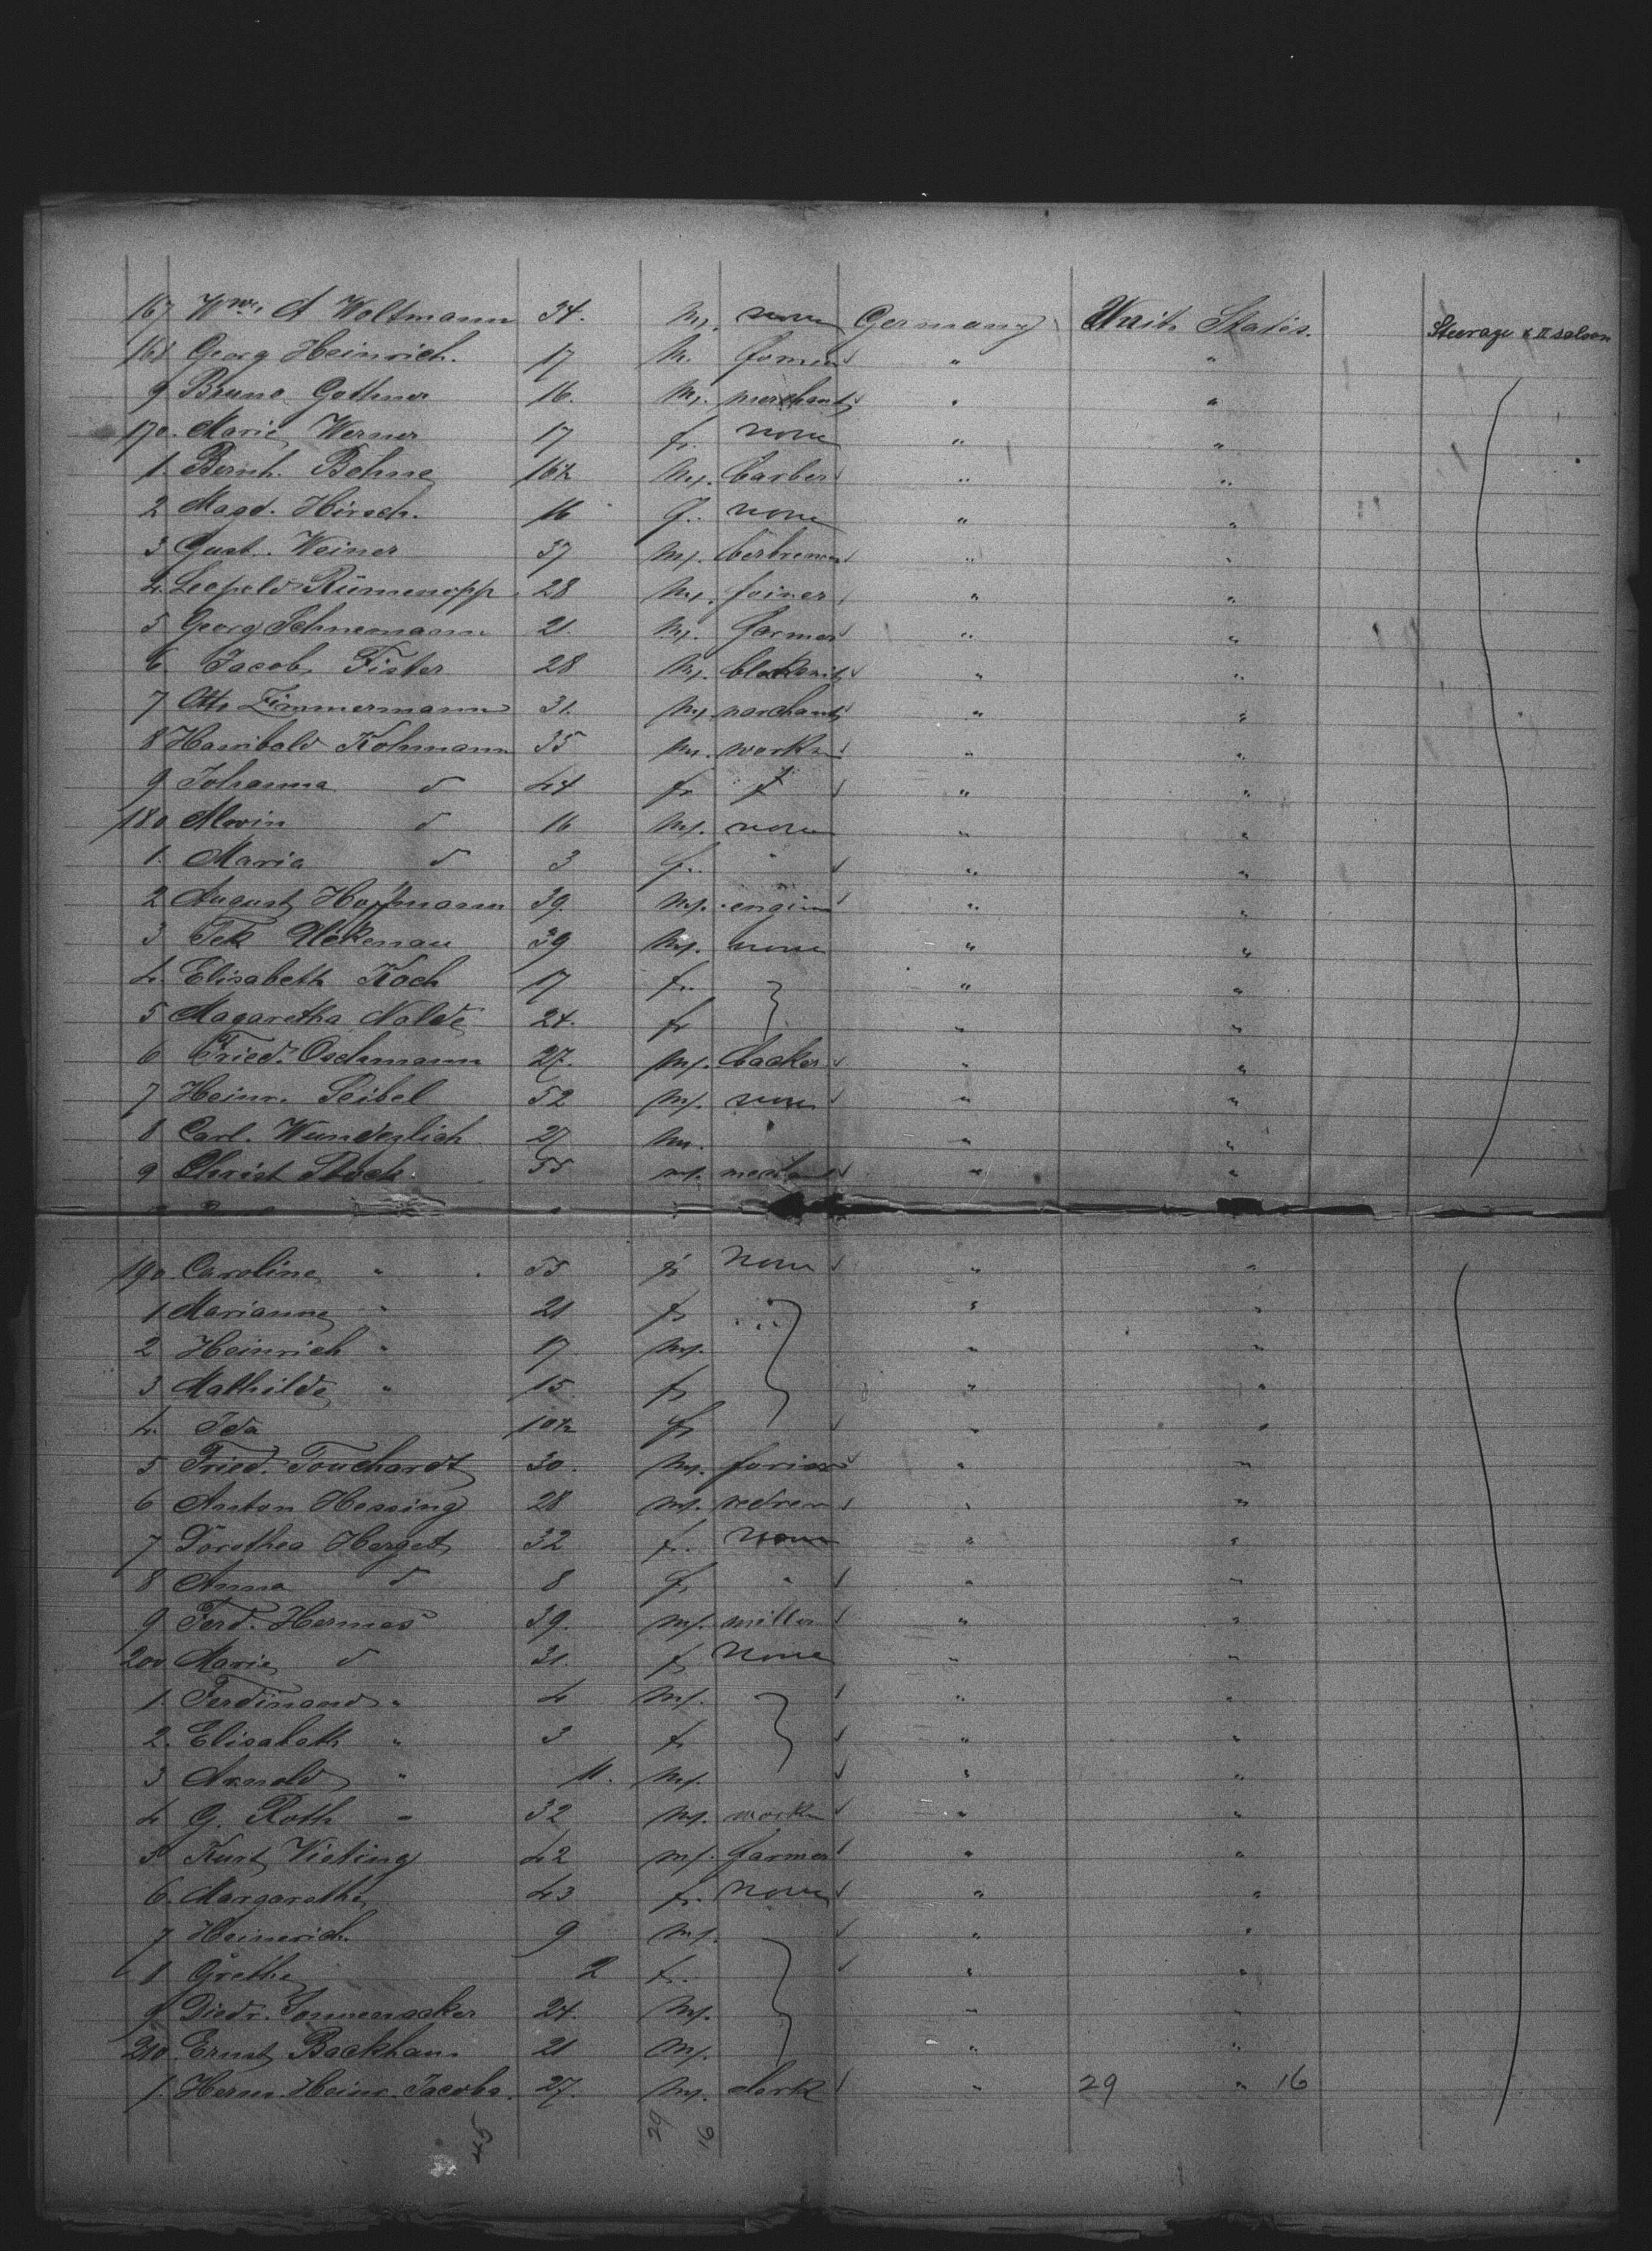 167 Wm. A Woltmann 34. m. none Germany Unit. States. Steerage & II saloon
168 Georg Heinrich. 17 m. " "
9 Bruno Gothner 16. m. merchant " "
170. Marie Werner 17 f. none " "
1. Bernh. Bohne 16½ m. barber " "
2 Magd. Hirsch. 16 f. none " "
3 Gust. Weiner 37 m. " "
4. Leopold 28 m. joiner " "
5 Georg Schnemann 21. m. farmer " "
6 Jacob Fister 28 m. " "
7 Otto Zimmermann 31. m. " "
8 Hanibald Kohmann 35 m. " "
9 Johanna d 44 f. " "
180 d 16 m. none " "
1. Maria d 3 f. " " "
2 August Hoffmann 39. m. " "
3 39 m. none " "
4. Elisabeth Koch 17 f. " "
5 Magaretha Nolde 24. f. " "
6 Fried. Oschmann 27. m. backer " "
7 Heinr. Seibel 52 m. none " "
8 Carl. Wunderlich 27 m. " "
9 Christ 55 m. " "
190. Caroline " 55 f. none " "
1 Marianne " 21 f. " "
2 Heinrich " 17 m. " "
3 Mathilde " 15 f. " "
4. Ida 10½ f. " "
5 Fried. Touchardt 30. m. " "
6 Anton Hessing 28 m. " "
7 Dorothea Herget 32 f. none " "
8 Anna d 8 f. " " "
9 Ferd. Hermes 39. m. miller " "
200 Marie d 31. f. none " "
1. Ferdinand " 4 m. " "
2. Elisabeth " 3 f. " "
3 Arnold " 11. m. " "
4 G. Roth " 32 m. " "
5 Kurt Vieting 42 m. farmer " "
6. Margarethe 43 f. none " "
7 Heinerich. 9 m. " "
8 Grethe 2 f. " "
9 Diedr. Sonnenacker 24. m. " "
210. Ernst Backhaus 21 m. " "
1. Herm. Heinr. Jacobs. 27. m. clerk " 29 " 16
45 29 16